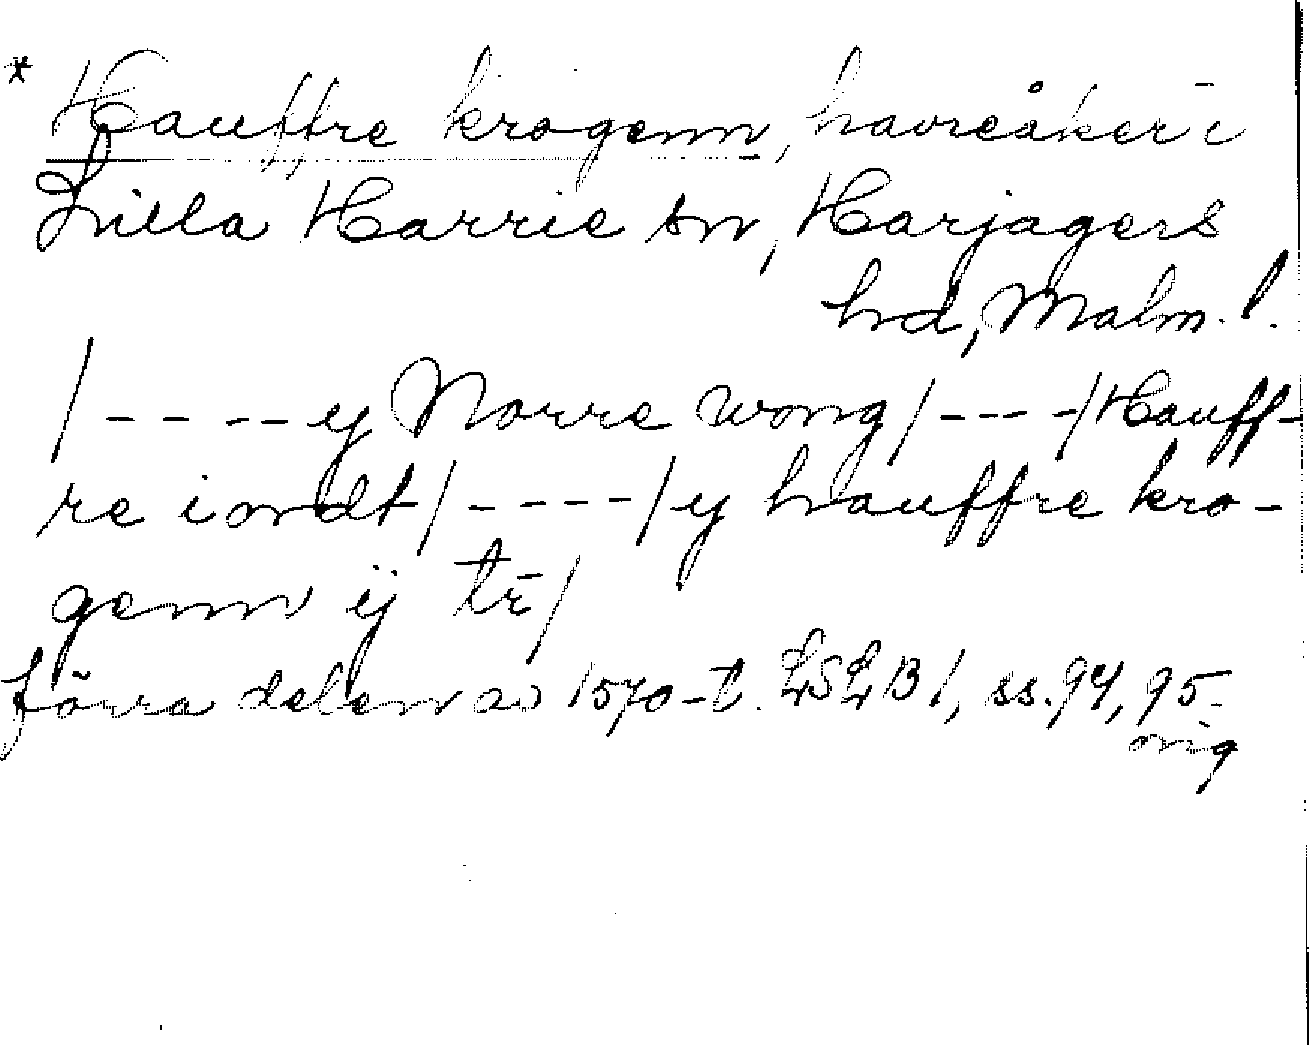 * Hauffre krogenn, havreåker i
Lilla Harrie sn, Harjagers
hd, Malm. l.
/----y Norre wong/----/Hauff-
re iordt/----/y hauffre kro-
genn ij tr̄/
förra delen av 1570-t. LSLB 1, ss. 94, 95-
orig